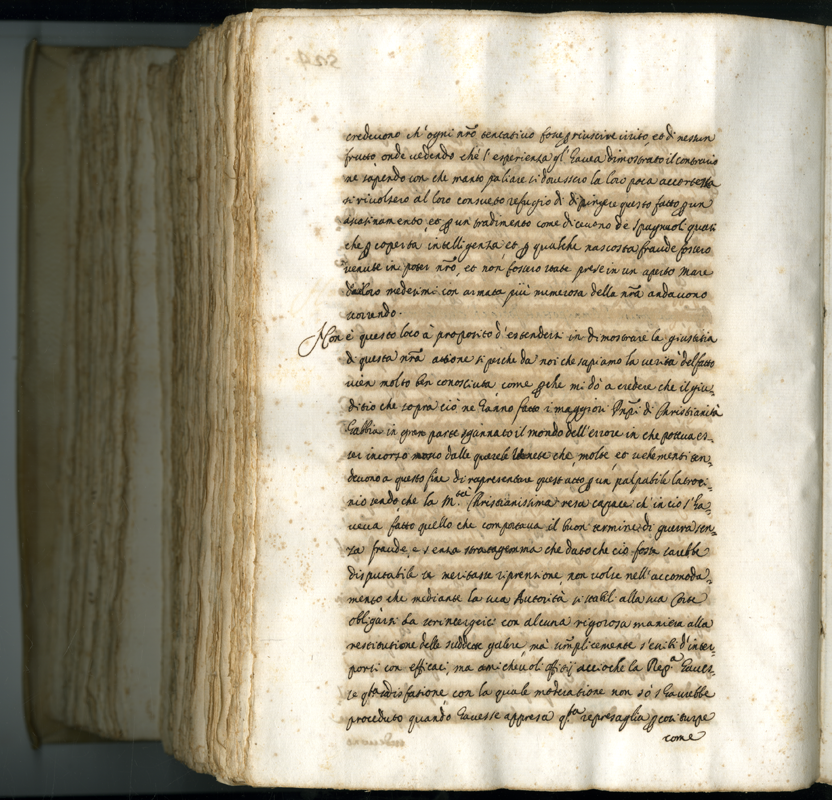 credevono ch'ogni nr̃o tentativo fosse ꝑ riuscire irrito, et di nessun
frutto, onde vedendo ché l'esperienza gl'havea dimostrato il contrario
ne sapendo con che manto paliare si dovessero la loro poca accortezza
si rivolsero al loro consueto refugio di dipingere questo fatto ꝑ un
assassinamento, et ꝑ un tradimento come dicevano de Spagnuoli quasi
che ꝑ coperta intelligenza, et ꝑ qualche nascosta fraude fossero
venute in poter nr̃o, et non fossero state prese in un aperto Mare
da loro medesimi con armata più numerosa della nr̃a andavono
correndo.
Non è questo loco à proposito d'estendersi in dimostrare la giustitia
di questa nr̃a attione si perche da noi che sapiamo la verità del fatto
vien molto ben conosciuta, come ꝑche mi dò a credere che il giu-
ditio che sopra ciò ne hanno fatto i maggiori Pnp̃i di Christianità
habbia in gran parte sgannato il mondo dell'errore in che poteva es-
ser incorso mosso dalle querele Venete che molte, et vehementi ten-
devono a questo fine di rapresentare quest'atto ꝑ un palpabile latroci-
nio sendo che la M.tà Christianissima resa capace ch'in ciò s'ha-
veva fatto quello che comportava il buon termine di guerra sen-
za fraude, e senza stratagemma che dato che ciò fosse sarebbe
disputabile se meritasse riprensione, non volse nell'accomoda-
mento che mediante la sua Autorità si stabilì alla sua Corte
obligarsi da strintergeici con alcuna rigorosa maniera alla
restitutione delle suddette galere, mà semplicemente s'esibì d'inter-
porsi con efficaci, ma amichevoli offitij acciòche la Rep.a havesse
qta sodisfatione con la quale moderatione non sò s'haverebbe
proceduto quando havesse appresa q.ta represaglia ꝑ così turpe
come